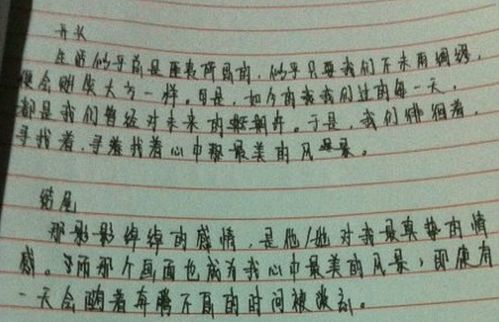 开头
生活似乎前是匝表所局的，似乎只要我们不未雨绸缪，
便会则失大方一样。但是，如今的我我们过的每一天，
都是我们曾经对未来的期许。于是，我们徘徊着，
寻找着，寻着找着心中最美的风景。
结尾
那影影绰绰的感情，是他/她对我最真挚的情
感。而那个画面也成为我心中最美的风景，即使有
一天会随着奔腾不息的时间被激刮。